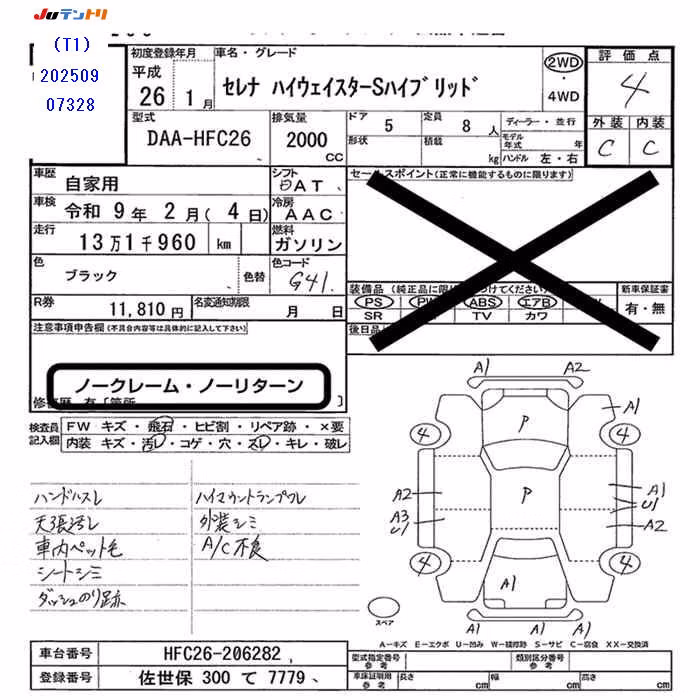 JUテントリ
(T1)
202509
07328
初度登録年月
平成
26 1月
車名・グレード
セレナ ハイウェイスターSハイブリッド
2WD
・
4WD
評価点
4
外装 内装
C C
型式
DAA-HFC26
排気量
2000
CC
ドア 5
形状
定員 8 人
積載 kg
ディーラー・並行
モデル年式 年
ハンドル 左・右
車歴 自家用
シフト
AT
セールスポイント(正常に機能するものに限ります)
車検 令和 9年 2月(4日)
冷房 AAC
走行 13万1千960 km
燃料 ガソリン
色 ブラック 色替
色コード G41
装備品
PS PW ABS エアB
SR TV カワ
新車保証書
有・無
R券 11,810円
名変通知期限 月 日
後日品
注意事項申告欄(不具合内容等は具体的に記入して下さい)
ノークレーム・ノーリターン
修復歴 有〔箇所 〕
検査員記入欄
FW キズ・飛石・ヒビ割・リペア跡・×要
内装 キズ・汚レ・コゲ・穴・スレ・キレ・破レ
ハンドルスレ
天張汚レ
車内ペット毛
シートシミ
ダッシュのり跡
ハイマウントランプワレ
外装シミ
A/C不良
A1 A2
A1
P
4 4
P
A2
A3
U1
A1
U1
A2
4 4
A1
A1 A1
スペア
A-キズ E-エクボ U-凹み W-補修跡 S-サビ C-腐食 XX-交換済
車台番号 HFC26-206282
登録番号 佐世保 300 て 7779
型式指定番号
参考
類別区分番号
参考
車床証明用
参考
長さ cm 幅 cm 高さ cm